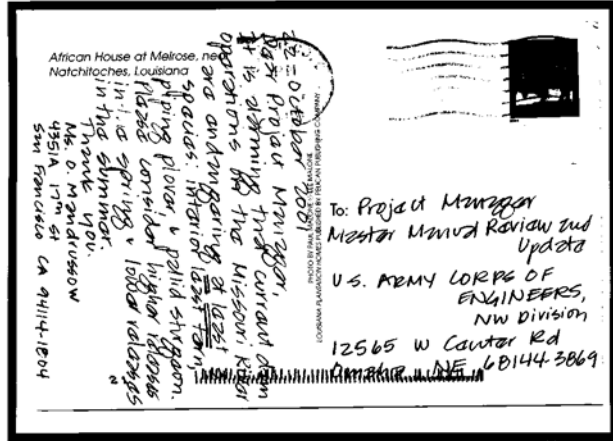 African House at Melrose, near
Natchitoches, Louisiana
22 October 2001
Dear Project Manager,
It is alarming that current dam
operations for the Missouri River
are endangering at least 3
species: interior least tern,
piping plover & pallid sturgeon.
Please consider higher releases
in the spring & lower releases
in the summer.
Thank you.
Ms. O. Mandrussow
4351A 17th St
San Francisco CA 94114-1804
PHOTO BY PAUL MALONE & LEE MALONE
LOUISIANA PLANTATION HOMES PUBLISHED BY PELICAN PUBLISHING COMPANY
To: Project Manager
Master Manual Review and
Update
U.S. ARMY CORPS OF
ENGINEERS,
NW Division
12565 W Center Rd
Omaha, NE 68144-3869
2